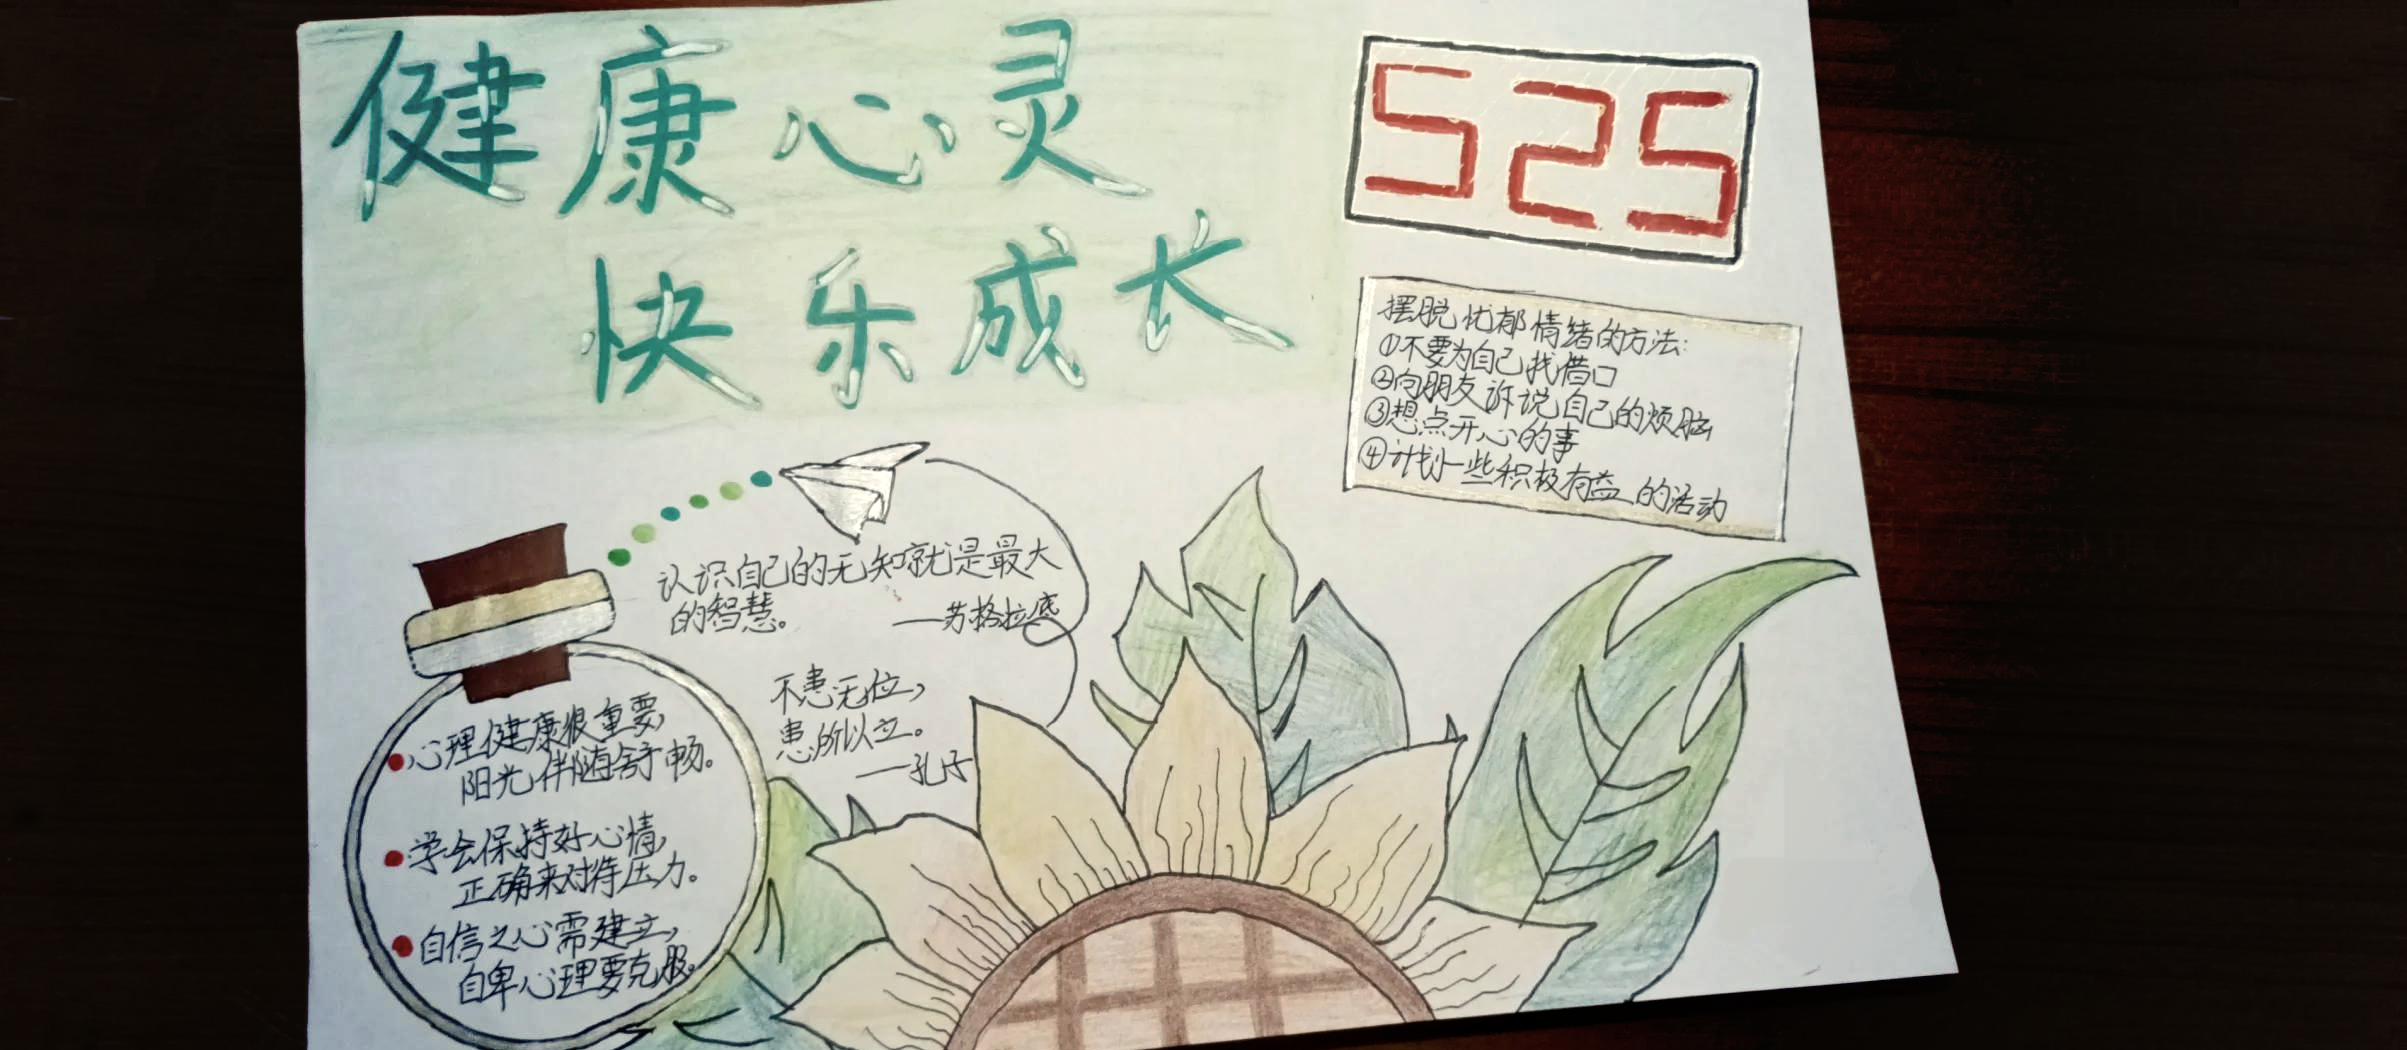 健康心灵
快乐成长
525
摆脱忧郁情绪的方法:
①不要为自己找借口
②向朋友诉说自己的烦脑
③想点开心的事
④计划一些积极有益的活动
认识自己的无知就是最大
的智慧。
—苏格拉底
不患无位,
患所以立。
—孔子
心理健康很重要,
阳光伴随舒畅。
学会保持好心情,
正确来对待压力。
自信之心需建立,
自卑心理要克服。